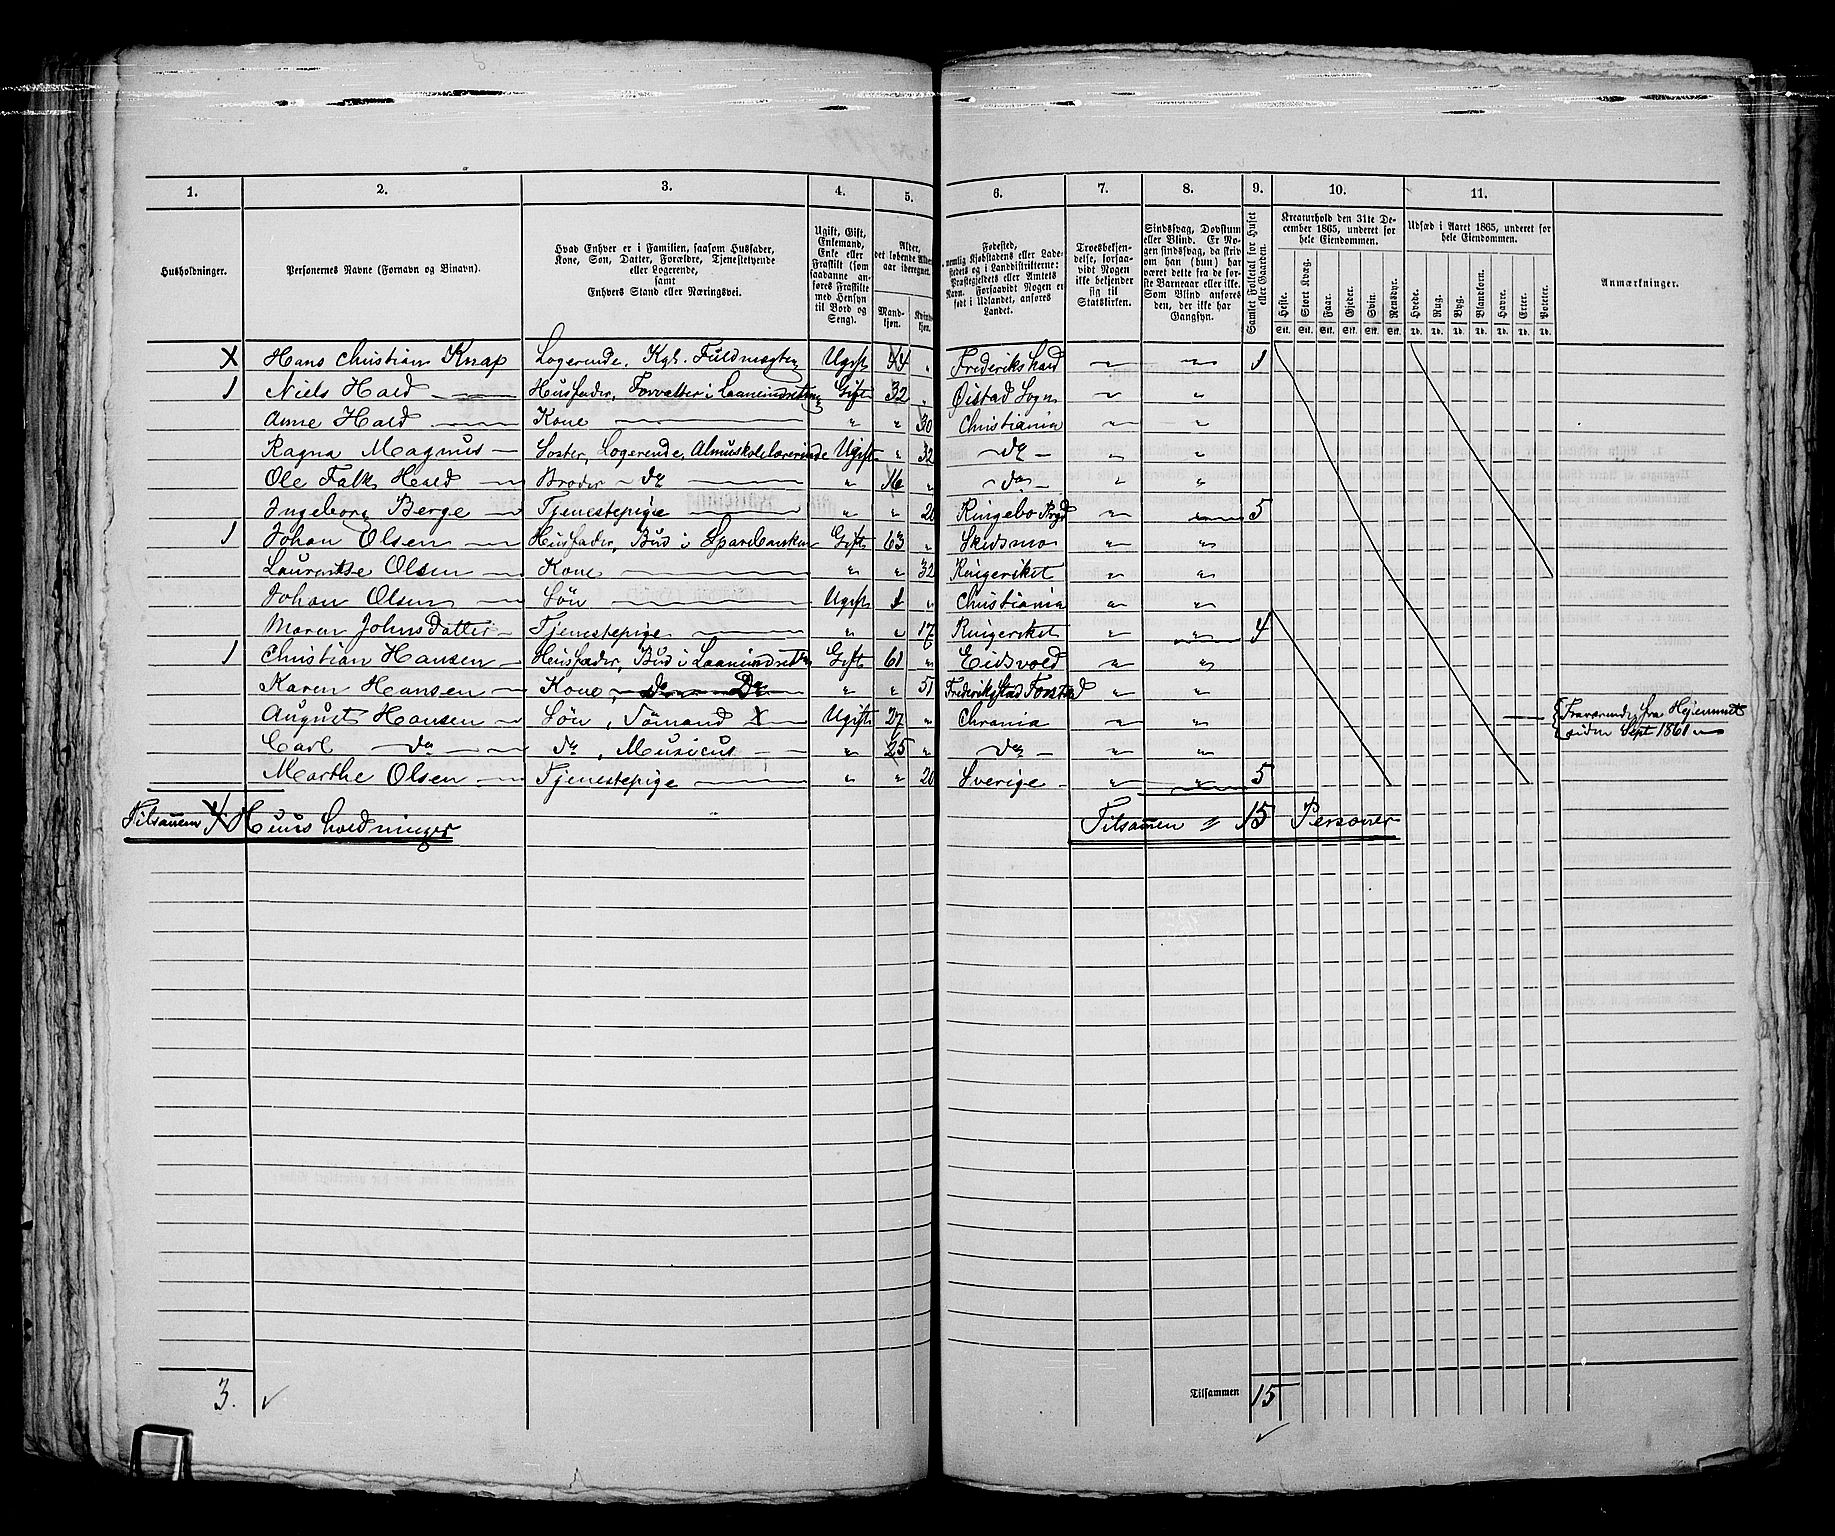 1. 2. 3. 4. 5. 6. 7. 8. 9. 10. 11.
Husholdninger.
Personernes Navne (Fornavn og Binavn).
Hvad Enhver er i Familien, saasom Husfader,
Kone, Søn, Datter, Forældre, Tjenestetyende
eller Logerende,
samt
Enhvers Stand eller Næringsvei.
Ugift, Gift,
Enkemand,
Enke eller
Fraskilt (som
saadanne an-
føres Fraskilte
med Hensyn
til Bord og
Seng).
Alder,
det løbende Alders-
aar iberegnet.
Mand-
kjøn.
Kvinde-
kjøn.
Fødested,
nemlig Kjøbstadens eller Lade-
stedets og i Landdistrikterne:
Præstegjeldets eller Amtets
Navn. Forsaavidt Nogen er
født i Udlandet, anføres
Landet.
Troesbekjen-
delse, forsaa-
vidt Nogen
ikke bekjender
sig til
Statskirken.
Sindssvag, Døvstum
eller Blind. Er No-
gen sindssvag, da skriv
om han (hun) har
været dette fra de før-
ste Barneaar eller ikke.
Som Blind anføres
den, der ikke har
Gangsyn.
Samlet Folketal for Huset
eller Gaarden.
Kreaturhold den 31te De-
cember 1865, underet for
hele Eiendommen.
Heste. Stort Kvæg. Faar. Gjeder. Svin. Rensdyr.
Stk. Stk. Stk. Stk. Stk. Stk.
Udsæd i Aaret 1865, underet for
hele Eiendommen.
Hvede. Rug. Byg. Blandkorn. Havre. Erter. Poteter.
Td. Td. Td. Td. Td. Td. Td.
Anmærkninger.
X Hans Christian Knap Logerende, Kgl. Fuldmægtig Ugift 44 „ Frederikshald „ „ 1
1 Niels Hald Husfader, Forvalter i Laaneindretning Gift 32 „ Øistad Sogn „ „
Anne Hald Kone „ „ 30 Christiania „ „
Ragna Magnus Søster, Logerende, Almuskolelærerinde Ugift „ 32 do „ „
Ole Falk Hald Broder do „ 16 „ do „ „
Ingeborg Berge Tjenestepige „ „ 20 Ringebo Pregd „ „ 5
1 Johan Olsen Husfader, Bud i Sparebanken Gift 63 „ Skedsmo „ „
Laurentse Olsen Kone „ „ 32 Ringeriket „ „
Johan Olsen Søn Ugift 1 „ Christiania „ „
Maren Johnsdatter Tjenestepige „ „ 17 Ringeriket „ „ 4
1 Christian Hansen Husfader, Bud i Laaneindretn Gift 61 „ Eidsvold „ „
Karen Hansen Kone „ „ 51 Frederikstad Forstad „ „
August Hansen Søn, Sömand X Ugift 27 „ Chrania „ „ Fraværende fra Hjemmet
siden Sept 1861
Carl do do, Musicus „ 25 „ do „ „
Marthe Olsen Tjenestepige „ „ 20 Sverige „ „ 5
Tilsammen 4 Huusholdninger
Tilsammen 15 Personer
3. ✓
Tilsammen 15
✓